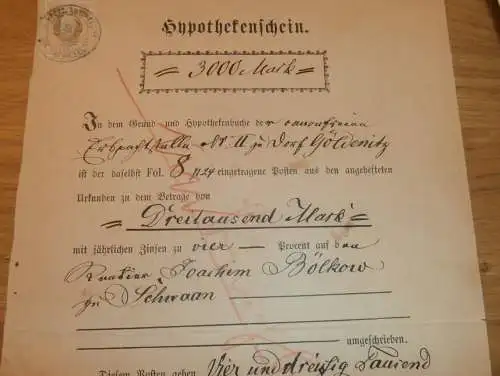 Hypothekenschein.
= 3000 Mark =
In dem Grund- und Hypothekenbuche der
Erbpachtstelle № II zu Dorf Göldenitz
ist der daselbst Fol. 8 eingetragene Posten aus den angehefteten
Urkunden zu dem Betrage von
= Dreitausend Mark =
mit jährlichen Zinsen zu vier — Procent auf den
Rentier Joachim Bölkow
zu Schwaan
umgeschrieben.
Diesem Posten gehen Vier und dreißig Tausend